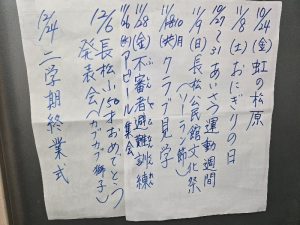 10/24(金)虹の松原
11/8(土)おにぎりの日
10/27〜31 あいさつ運動週間
11/9(日)長松公民館文化祭
(ソーラン節)
クラブ見学
11/28(金)不審者避難訓練
集会
12/6 長松小150才おめでとう
発表会
12/24 二学期終業式